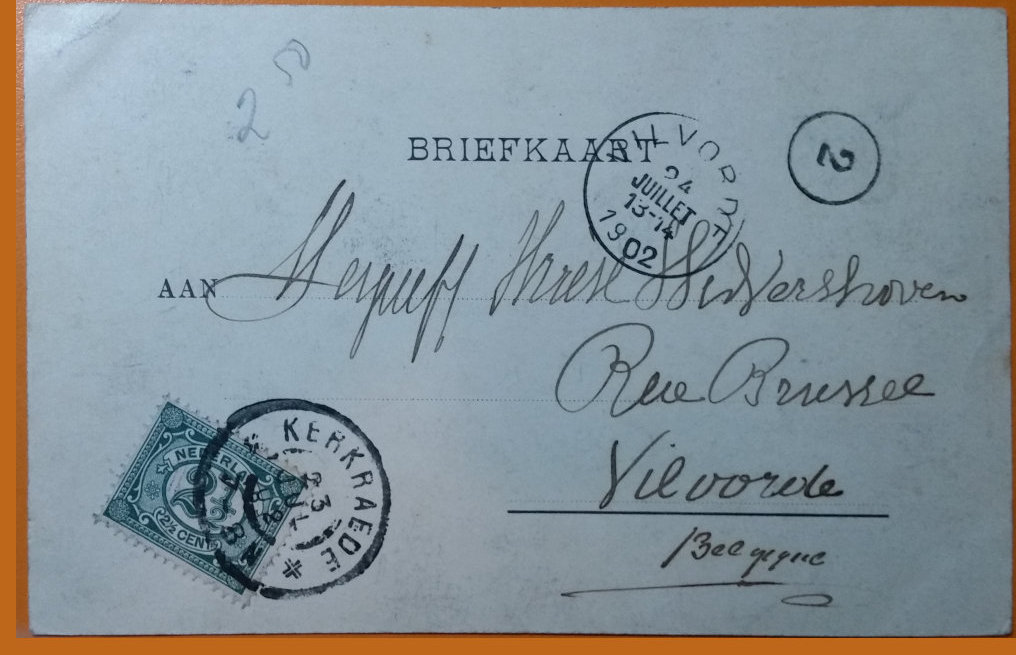 2 50
BRIEFKAART
VILVORDE
24
JUILLET
13-14
1902
2
AAN
Wedershoven
Rue Brussel
Vilvoorde
Belgique
NEDERL
2½
2½ CENT
KERKRAEDE
23
JUL
8 N